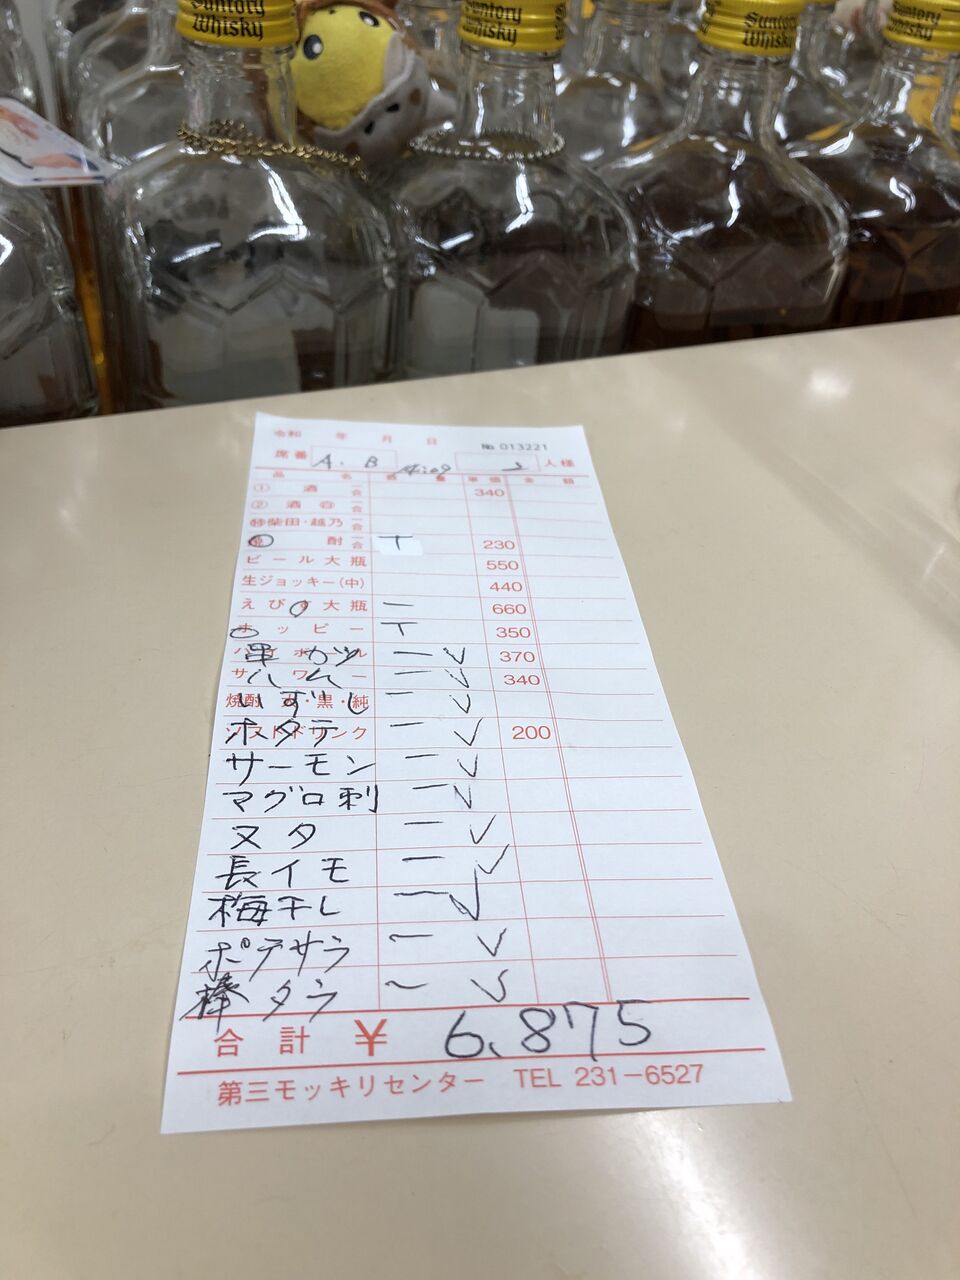 Suntory Whisky
Suntory Whisky
Suntory Whisky
Suntory Whisky
令和 年 月 日 No 013221
席番 A. B 人様
品 名 数 量 単価 金 額
① 酒 一合 340
② 酒 合 一合
㊕柴田・越乃 一合
酎 一合 丅 230
ビール大瓶 550
生ジョッキー(中) 440
えびす大瓶 二 660
ホッピー 丅 350
串カツ 一 ✓ 370
ハム 一 ✓ 340
いずし 一 ✓
ホタテ 一 ✓ 200
サーモン 一 ✓
マグロ刺 一 ✓
ヌタ 一 ✓
長イモ 一 ✓
梅干し 一 ✓
ポテサラ 一 ✓
棒タラ 一 ✓
合計 ¥ 6.875
第三モッキリセンター TEL 231-6527